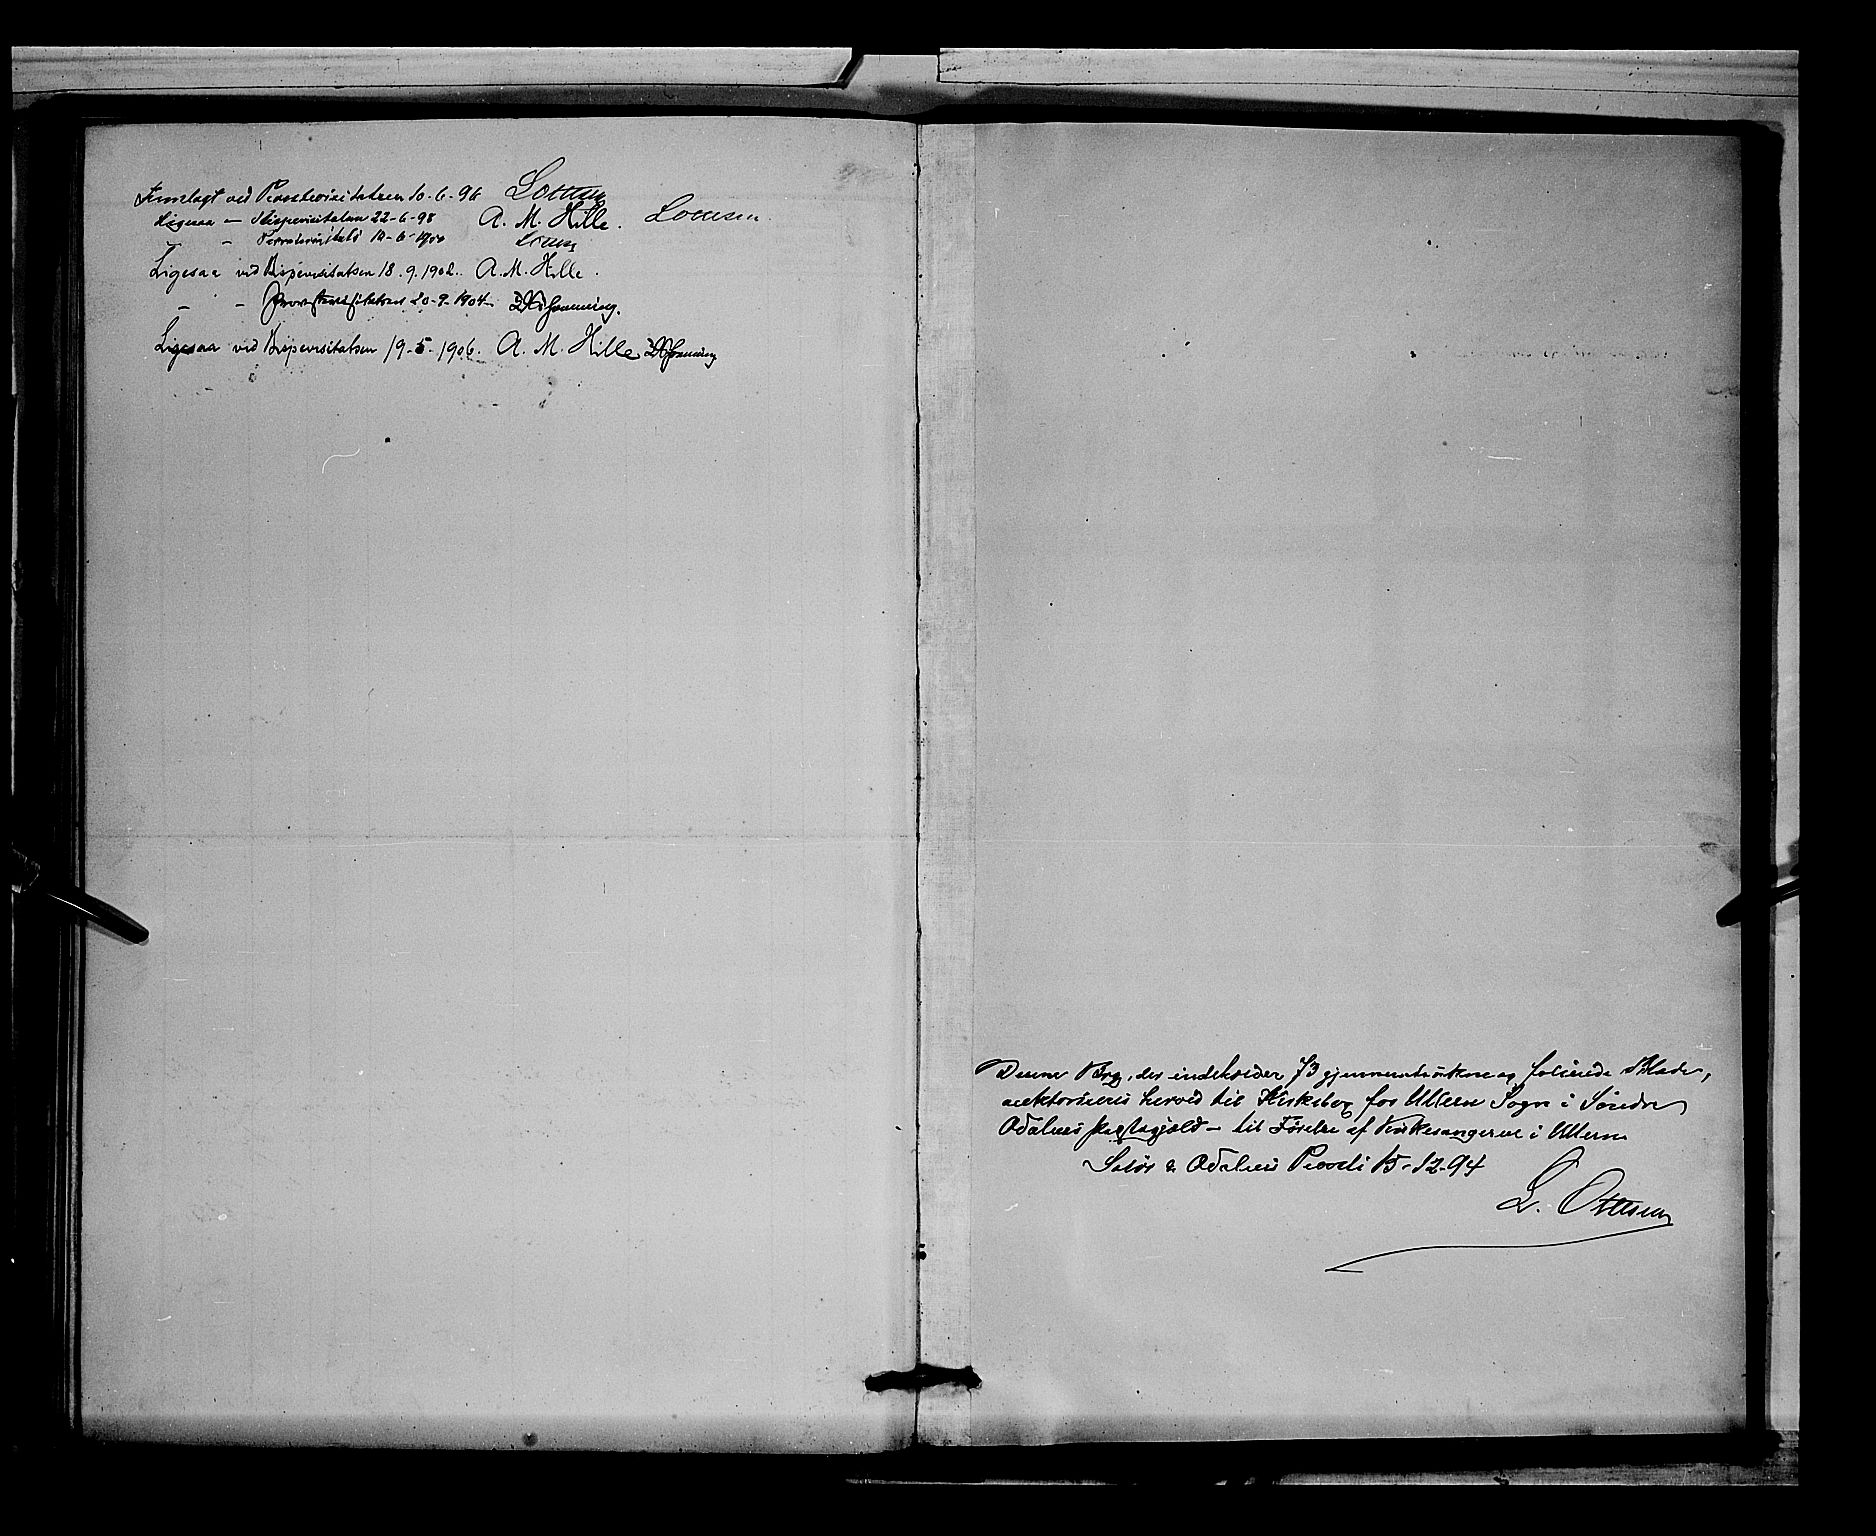 Fremlagt ved Provstevisitatsen 10-6-96 Ottesen
Ligesaa — Bispevisitatsen 22-6-98 A. M. Hille. Ottesen
— Provstevisitats 10-6-1900 Ottesen
Ligesaa ved Bispevisitatsen 18.9.1902. A. M. Hille.
- - Provstevisitatsen 20-9-1904
Ligesaa ved Bispevisitatsen 19-5-1906. A. M. Hille
Denne Bog, der indeholder 73 gjennemtrukne og folierede Blade,
auktoriseres herved til Kirkebog for Ullern Sogn i Søndre
Odalens Præstegjæld – til Førelse af Kirkesangeren i Ullern
Solør & Odalens Provsti 15-12-94
L. Ottesen